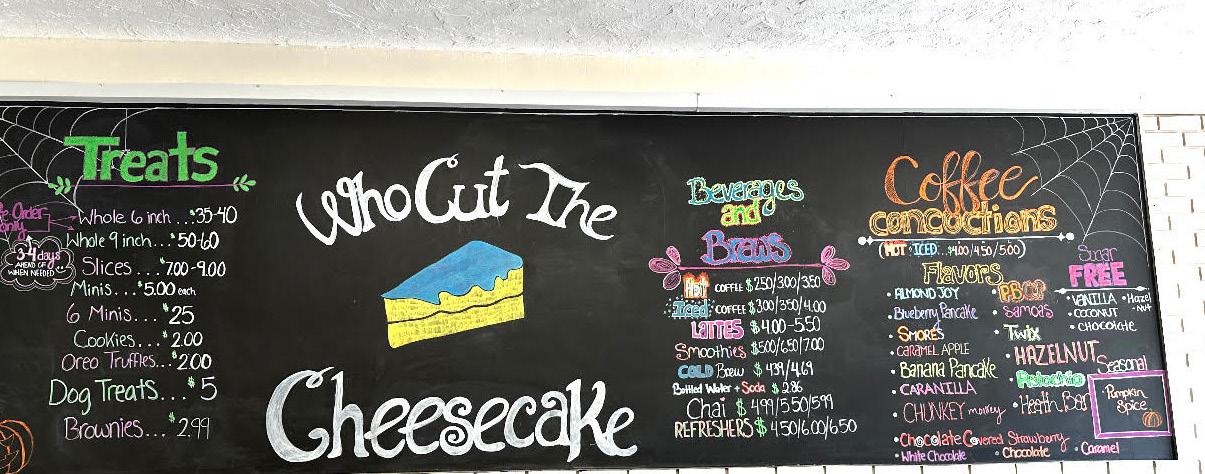 Treats
Pre-Order
only
3-4 days
AHEAD OF
WHEN NEEDED
Whole 6 inch...$35-40
Whole 9 inch...$50-60
Slices...$7.00-9.00
Minis...$5.00 each
6 Minis...$25
Cookies...$2.00
Oreo Truffles...$2.00
Dog Treats...$5
Brownies...$2.99
Who Cut The
Cheesecake
Beverages
and
Brews
Hot COFFEE $2.50/3.00/3.50
Iced COFFEE $3.00/3.50/4.00
LATTES $4.00-5.50
Smoothies $5.00/6.50/7.00
COLD Brew $4.39/4.69
Bottled Water + Soda $2.86
Chai $4.99/5.50/5.99
REFRESHERS $4.50/6.00/6.50
Coffee
concoctions
(HOT ICED...$4.00/4.50/5.00)
Flavors
• ALMOND JOY
• Blueberry Pancake
• SMORES
• CARAMEL APPLE
• Banana Pancake
• CARANILLA
• CHUNKEY monkey
• Chocolate Covered Strawberry
• White Chocolate
• PBCup
• Samoas
• Twix
• HAZELNUT
• Pistachio
• Heath Bar
• Chocolate
• Caramel
Sugar
FREE
• VANILLA
• Hazel
-NUT
• COCONUT
• CHOCOLATE
Seasonal
Pumpkin
Spice